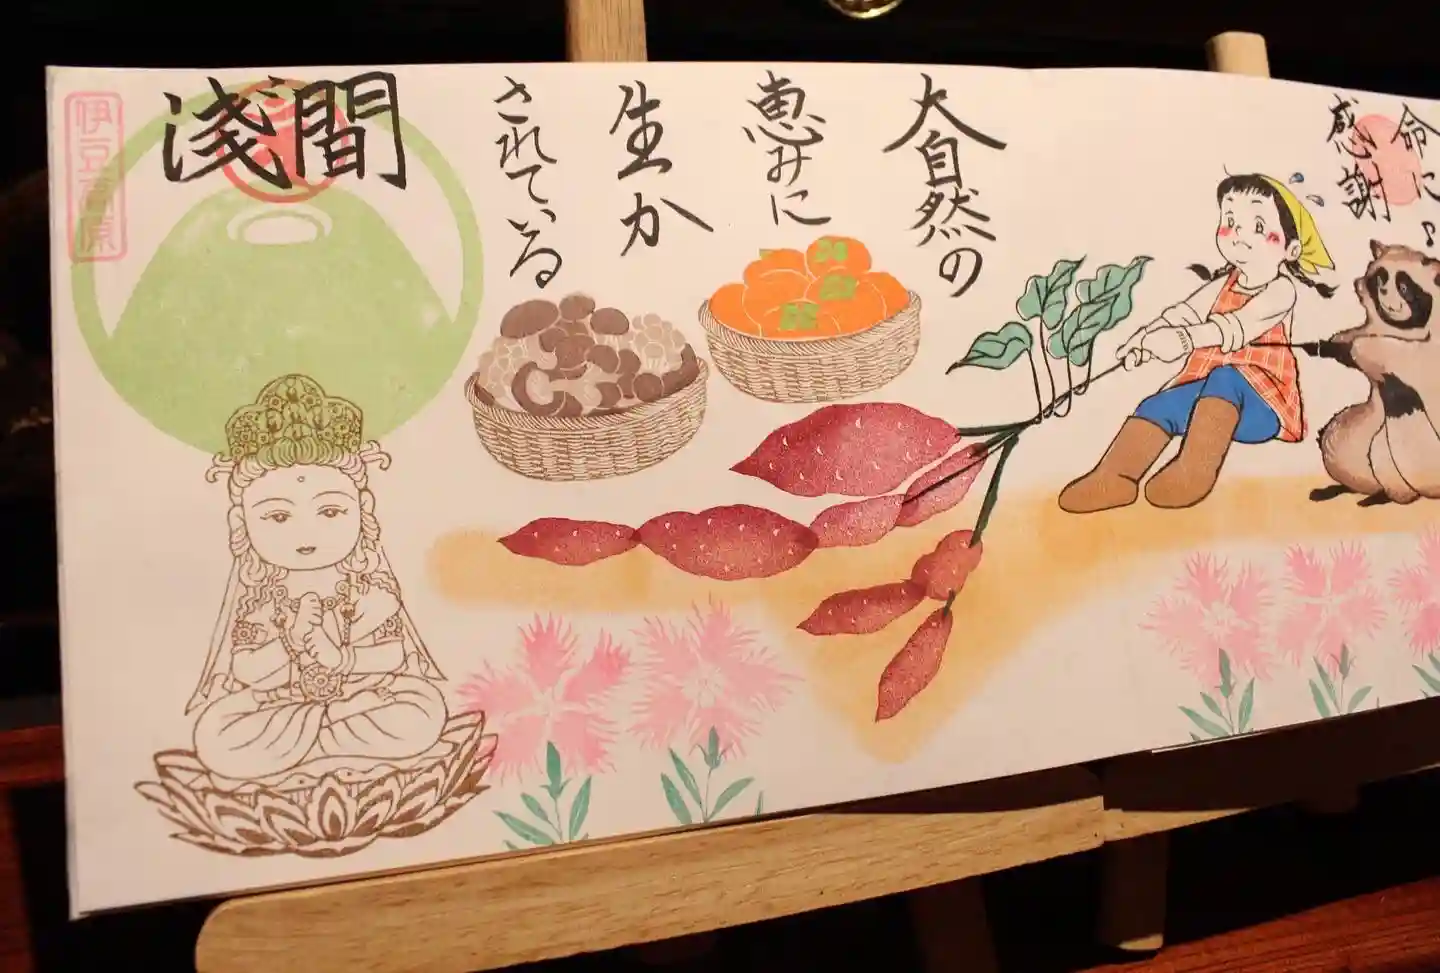 命に
感謝
大自然の
恵みに
生か
されている
浅間
伊豆高原